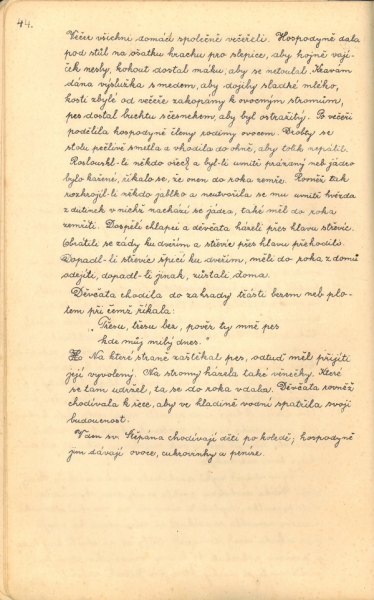 44.
Večer všichni domácí společně večeřeli. Hospodyně dala
pod stůl na ošatku hrachu pro slepice, aby hojně vají-
ček nesly, kohout dostal máku, aby se netoulal. Kravám
dána výslužka s medem, aby dojily sladké mléko,
kosti zbylé od večeře zakopány k ovocným stromům,
pes dostal buchtu s česnekem, aby byl ostražitý. Po večeři
podělila hospodyně členy rodiny ovocem. Drobty se
stolu pečlivě smetla a vhodila do ohně, aby tolik nepálil.
Rozlouskl-li někdo ořech a byl-li uvnitř prázný neb jádro
bylo kažené, říkalo se, že onen do roka zemře. Rovněž tak
rozkrojil-li někdo jablko a neutvořila se mu uvnitř hvězda
z dutinek v nichž nachází se jádra, také měl do roka
zemříti. Dospělí chlapci a děvčata házeli přes hlavu střevíc.
Obrátili se zády ku dveřím a střevíc přes hlavu přehodili.
Dopadl-li střevíc špicí ku dveřím, měli do roka z domů
odejíti, dopadl-li jinak, zůstali doma.
Děvčata chodila do zahrady třásti bezem neb plo-
tem při čemž říkala:
„Třesu, třesu bez, pověz ty mně pes
kde můj milý dnes."
Na které straně zaštěkal pes, odtud měl přijíti
její vyvolený. Na stromy házela také věnečky. Které
se tam udržel, ta se do roka vdala. Děvčata rovněž
chodívala k řece, aby ve hladině vodní spatřila svoji
budoucnost.
V den sv. Štěpána chodívají děti po koledě; hospodyně
jim dávají ovoce, cukrovinky a peníze.